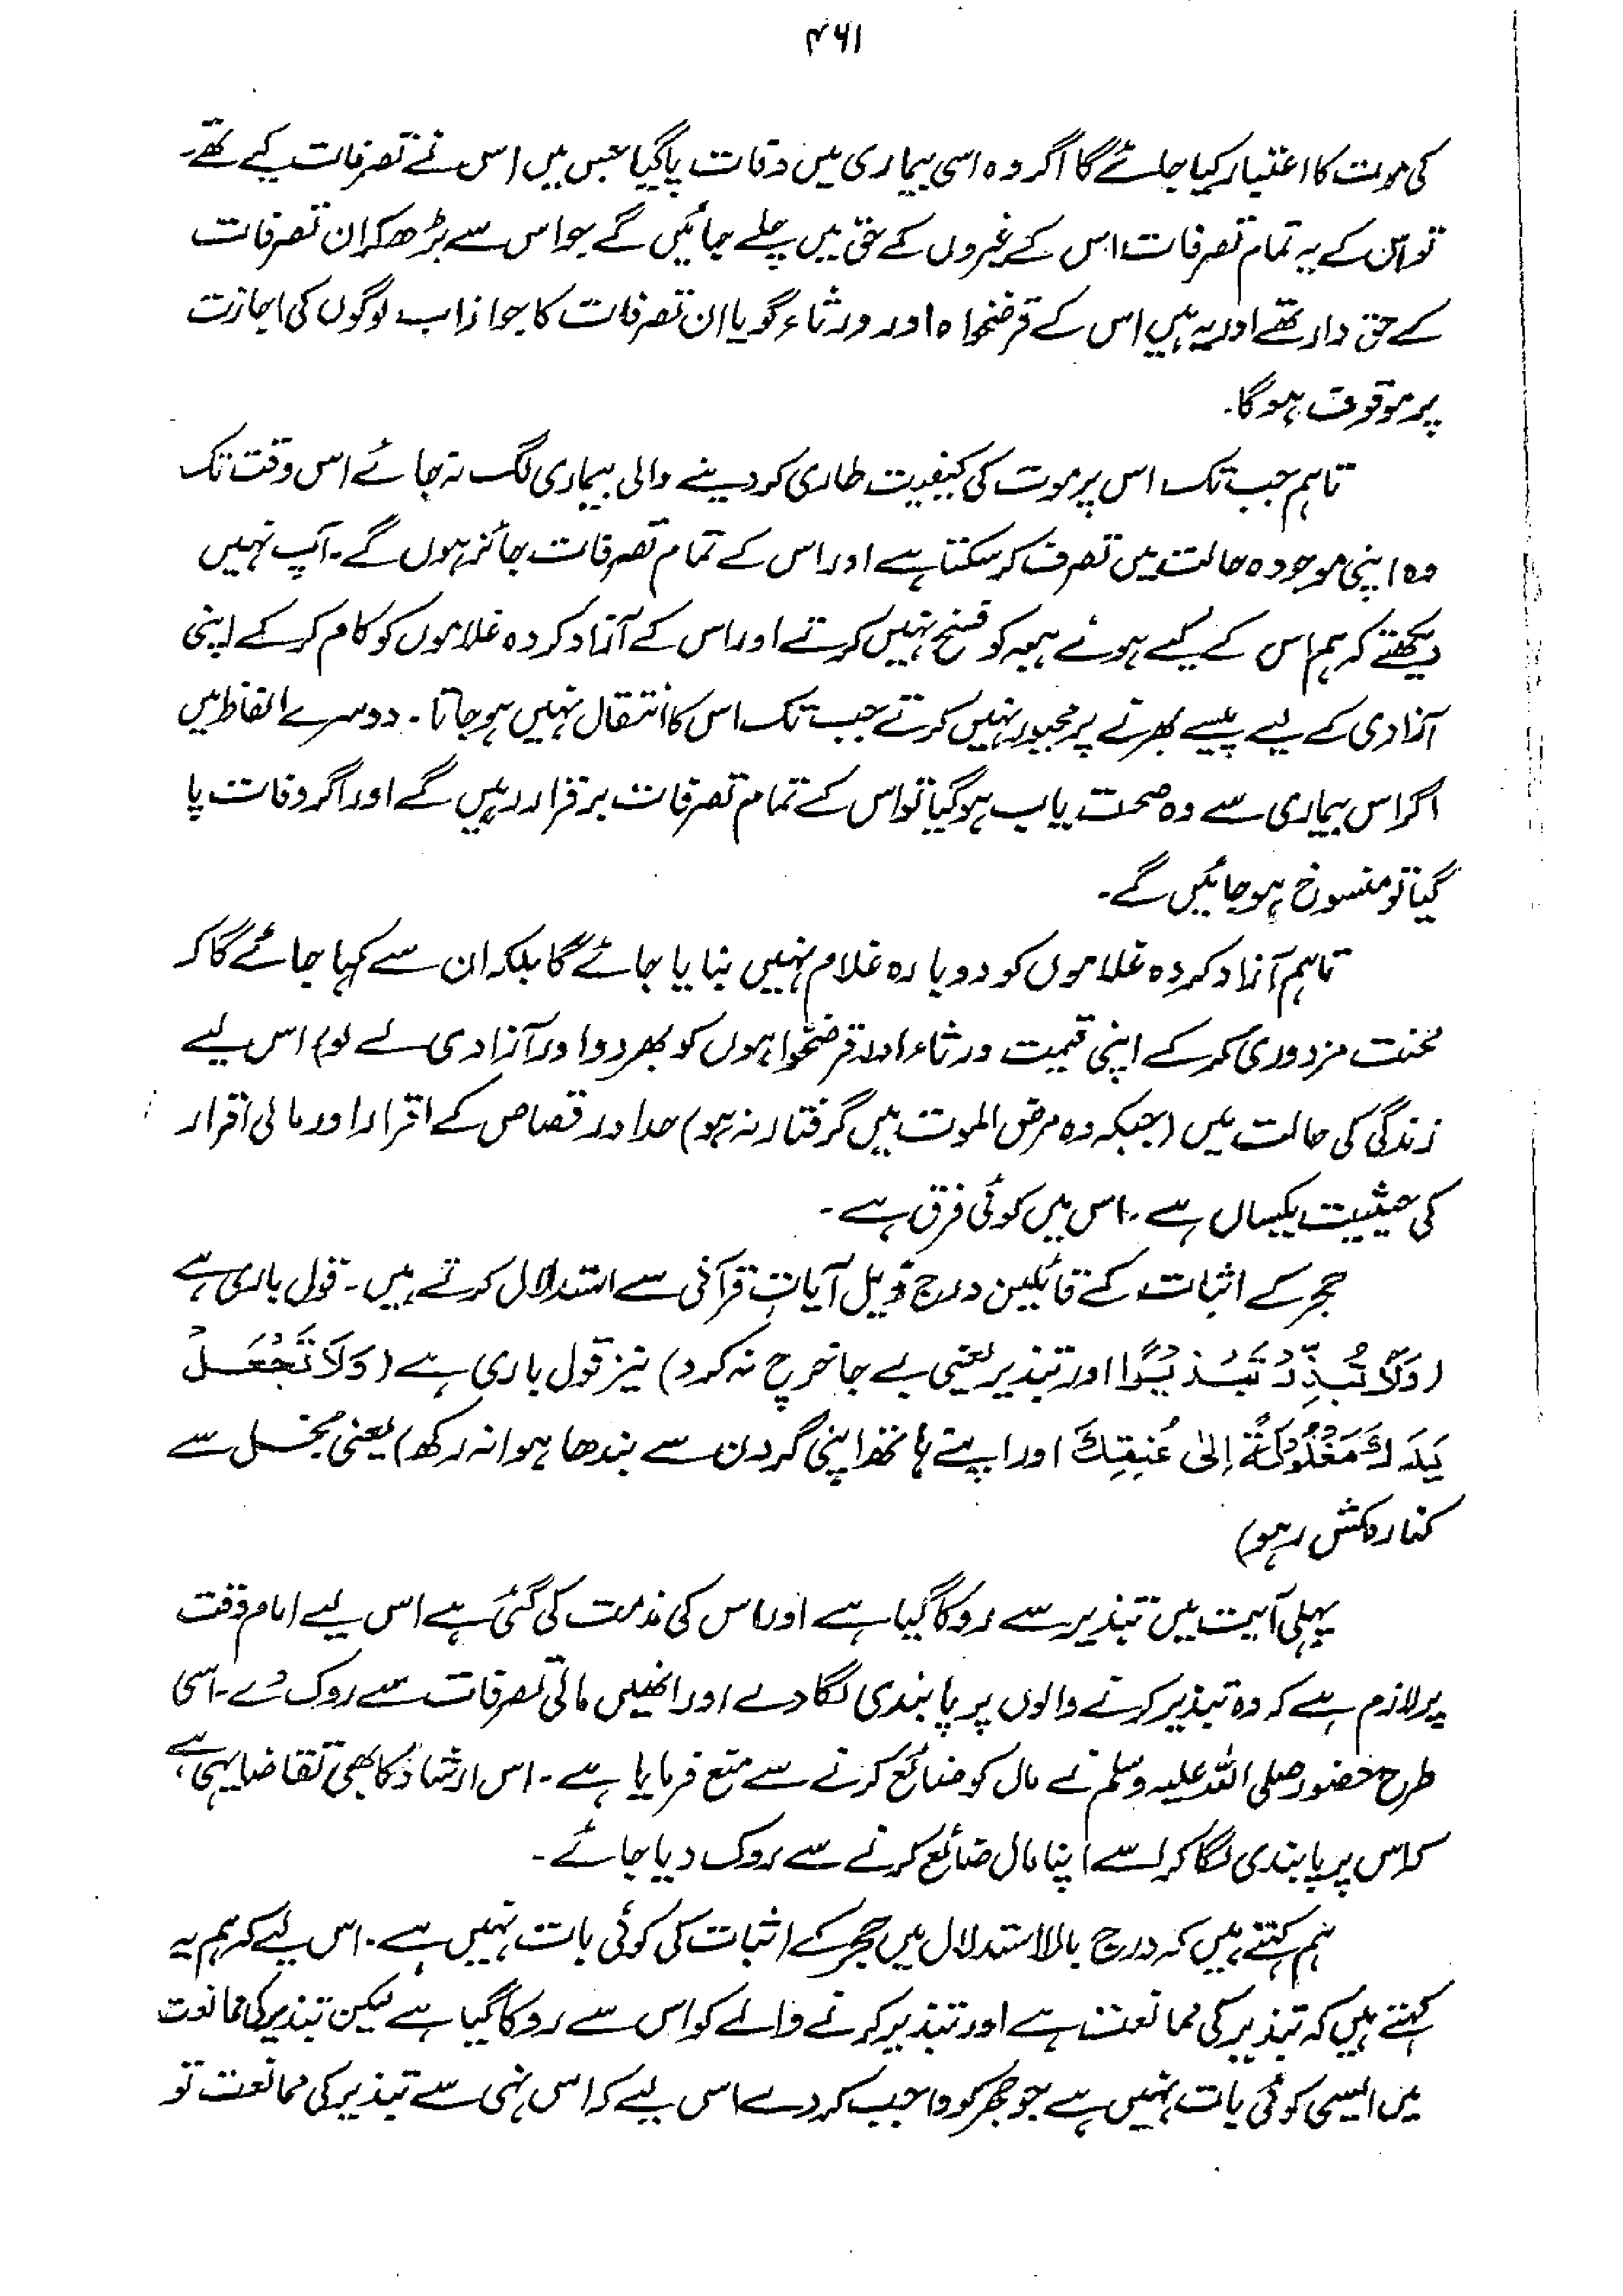 ۴۶۱
کی موت کا اعتبار کیا جائے گا اگر وہ اسی بیماری میں وفات پا گیا جس میں اس نے تصرفات کیے تھے۔
تو اس کے یہ تمام تصرفات اس کے غیروں کے حق میں چلے جائیں گے جو اس سے بڑھ کر ان تصرفات
کے حق دار تھے اور یہ ہیں اس کے قرضخواہ اور ورثاء گویا ان تصرفات کا جواز اب لوگوں کی اجازت
پر موقوف ہوگا۔
تاہم جب تک اس پر موت کی کیفیت طاری کر دینے والی بیماری لگ نہ جائے اس وقت تک
وہ اپنی موجودہ حالت میں تصرف کر سکتا ہے اور اس کے تمام تصرفات جائز ہوں گے۔ آپ نہیں
دیکھتے کہ ہم اس کے کیے ہوئے ہبہ کو فسخ نہیں کرتے اور اس کے آزاد کردہ غلاموں کو کام کر کے اپنی
آزادی کے لیے پیسے بھرنے پر مجبور نہیں کرتے جب تک اس کا انتقال نہیں ہو جاتا۔ دوسرے الفاظ میں
اگر اس بیماری سے وہ صحت یاب ہوگیا تو اس کے تمام تصرفات برقرار رہیں گے اور اگر وفات پا
گیا تو منسوخ ہو جائیں گے۔
تاہم آزاد کردہ غلاموں کو دوبارہ غلام نہیں بنایا جائے گا بلکہ ان سے کہا جائے گا کہ
محنت مزدوری کر کے اپنی قیمت ورثاء اور قرضخواہوں کو بھر دو اور آزادی لے لو) اس لیے
زندگی کی حالت میں (جبکہ وہ مرض الموت میں گرفتار نہ ہو) حد اور قصاص کے اقرار اور مالی اقرار
کی حیثیت یکساں ہے۔ اس میں کوئی فرق ہے۔
حجر کے اثبات کے قائلین درج ذیل آیات قرآنی سے استدلال کرتے ہیں۔ قول باری ہے
(وَلَا تُبَذِّرْ تَبْذِيْرًا اور تبذیر یعنی بے جا خرچ نہ کرو) نیز قول باری ہے (وَلَا تَجْعَلْ
يَدَكَ مَغْلُوْلَةً اِلٰى عُنُقِكَ اور اپنے ہاتھ اپنی گردن سے بندھا ہوا نہ رکھ) یعنی بخل سے
کنارہ کش رہو)
پہلی آیت میں تبذیر سے روکا گیا ہے اور اس کی مذمت کی گئی ہے اس لیے امام وقت
پر لازم ہے کہ وہ تبذیر کرنے والوں پر پابندی لگا دے اور انھیں مالی تصرفات سے روک دے۔ اسی
طرح حضور صلی اللہ علیہ وسلم نے مال کو ضائع کرنے سے منع فرمایا ہے۔ اس ارشاد کا بھی تقاضا یہی ہے
کہ اس پر پابندی لگا کر اسے اپنا مال ضائع کرنے سے روک دیا جائے۔
ہم کہتے ہیں کہ درج بالا استدلال میں حجر کے اثبات کی کوئی بات نہیں ہے۔ اس لیے کہ ہم یہ
کہتے ہیں کہ تبذیر کی ممانعت ہے اور تبذیر کرنے والے کو اس سے روکا گیا ہے لیکن تبذیر کی ممانعت
میں ایسی کوئی بات نہیں ہے جو حجر کو واجب کر دے اس لیے کہ اس نہی سے تبذیر کی ممانعت تو